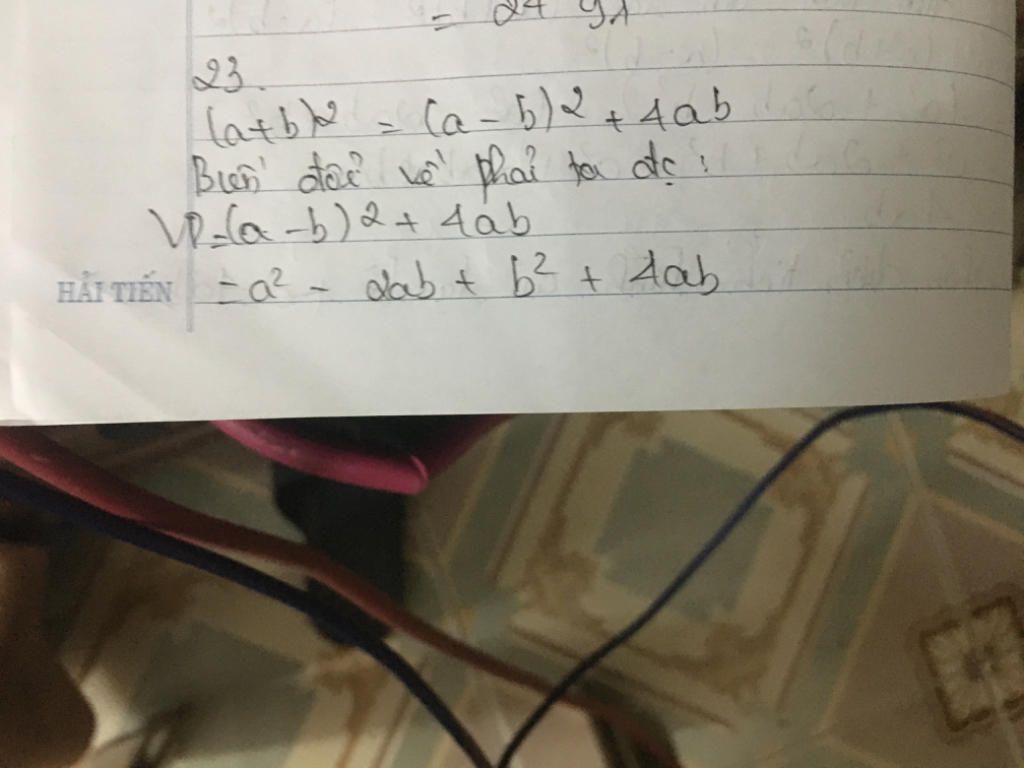 = 24
23.
(a+b)2 = (a - b)2 + 4ab
Biến đổi vế phải ta đc:
VP=(a - b)2 + 4ab
HẢI TIẾN
= a² - 2ab + b² + 4ab